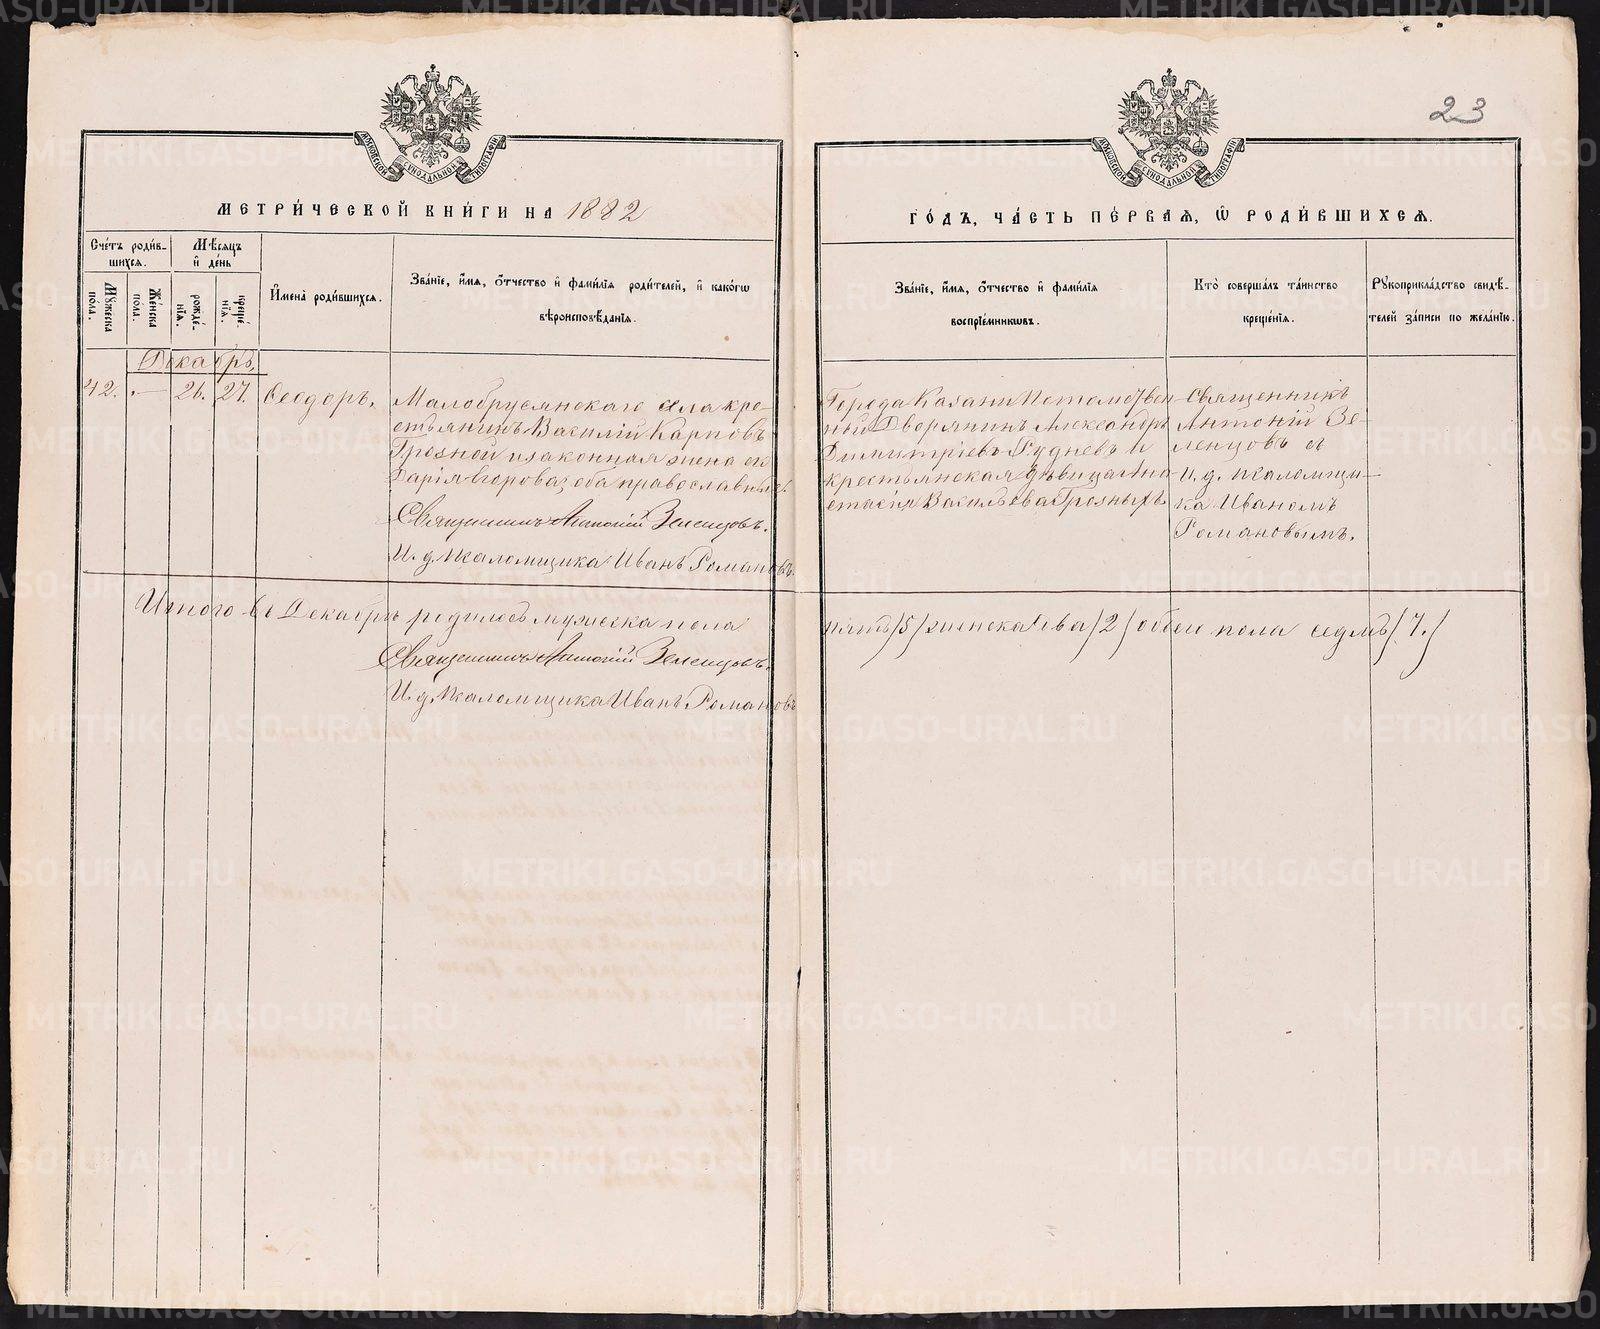 23
МОСКОВСКОЙ СѴНОДАЛЬНОЙ ТИПОГРАФІИ
МОСКОВСКОЙ СѴНОДАЛЬНОЙ ТИПОГРАФІИ
МЕТРИ́ЧЕСКОЙ КНИ́ГИ НА 1882
ГО́ДЪ, ЧА́СТЬ ПЕ́РВАЯ, Ѡ҆ РОДИ́ВШИХСЯ.
Сче́тъ роди́в-
шихся.
Мꙋ́жеска по́ла.
Же́нска по́ла.
Мѣ́сяцъ и҆ де́нь
рожде́-
нія.
креще́-
нія.
И҆мена̀ роди́вшихся.
Зва́ніе, и҆́мя, ѻ҆́тчество и҆ фами́лія роди́телей, и҆ како́гѡ
вѣроисповѣ́данія.
Зва́ніе, и҆́мя, ѻ҆́тчество и҆ фами́лія
воспріе́мникѡвъ.
Кто̀ соверша́лъ та́инство
креще́нія.
Рꙋкоприкла́дство свидѣ́-
телей за́писи по жела́нію.
Декабрь
42. — 26. 27. Ѳеодоръ.
Малобрусянскаго села кре-
стьянинъ Василій Карповъ
Грозной и законная жена его
Дарія Егорова; оба православные.
Священникъ Антоній Зеленцовъ.
И. д. псаломщика Иванъ Романовъ.
Города Казани Потомствен-
ный Дворянинъ Александръ
Димитріевъ Рудневъ и
крестьянская дѣвица Ана-
стасія Васильева Грозныхъ
Священникъ
Антоній Зе-
ленцовъ съ
и. д. псаломщи-
ка Иваномъ
Романовымъ.
Итого въ Декабрѣ родилось мужеска пола
пять /5/ женска два /2/ обоего пола седмь /7./
Священникъ Антоній Зеленцовъ.
И. д. Псаломщика Иванъ Романовъ
METRIKI.GASO-URAL.RU